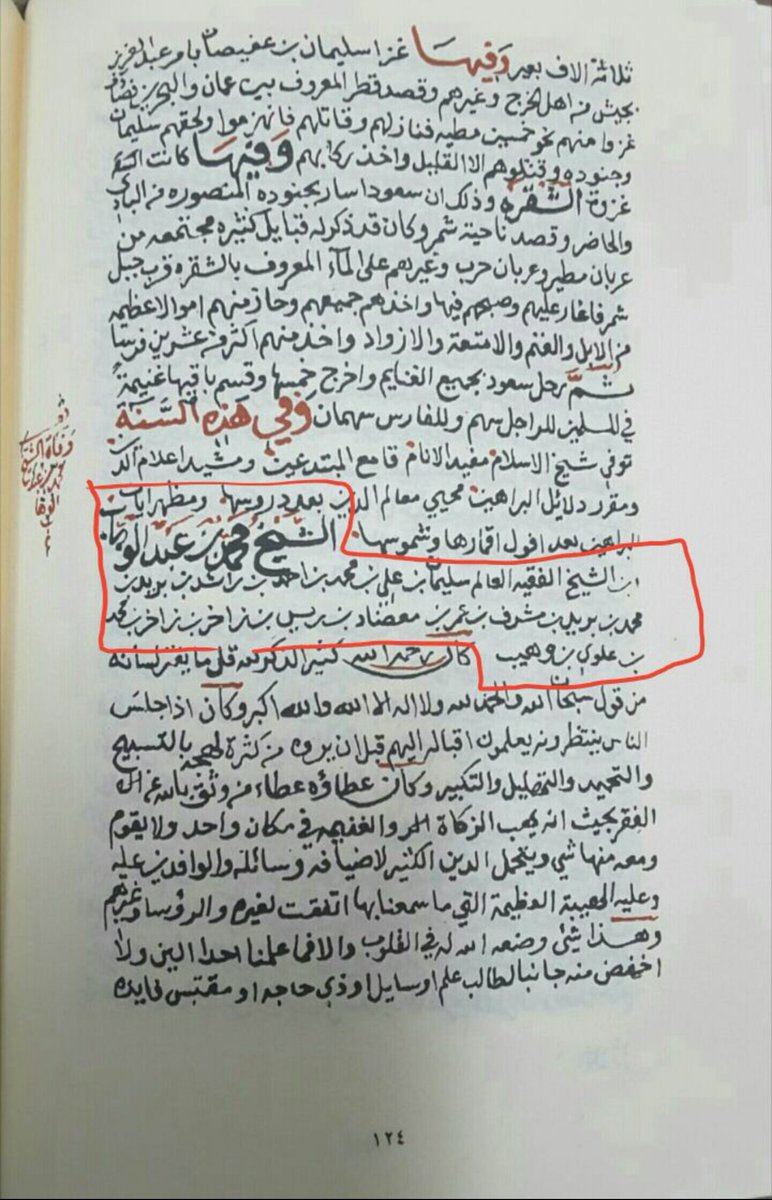 ثلاثة الاف بعير وفيها غزا سليمان بن عفيصان بامر عبد العزيز
بجيش من اهل الخرج وغيرهم وقصد قطر المعروف بين عمان والبحرين فصادف
غزوا منهم نحو خمسين مطيه فنازلهم وقاتلهم فانهزموا ولحقهم سليمان
وجنوده وقتلوهم الا القليل واخذ ركابهم وفيها كانت
غزوة الشقره وذلك ان سعودا سار بجنوده المنصوره من البادي
والحاضر وقصد ناحية شمر وكان قد ذكر له قبايل كثيره مجتمعه من
عربان مطير وعربان حرب وغيرهم على المآء المعروف بالشقره قرب جبل
شمر فاغار عليهم وصبحهم فيها واخذهم جميعهم وحاز منهم اموالا عظيمه
من الابل والغنم والامتعة والازواد واخذ منهم اكثر من عشرين فرسا
ثم رحل سعود بجميع الغنايم واخرج خمسها وقسم باقيها غنيمة
في المسلمين للراجل سهم وللفارس سهمان وفي هذه السنة
توفي شيخ الاسلام مفيد الانام قامع المبتدعين ومشيد اعلام الدين
ومقرر دلائل البراهين محيي معالم الدين بعد دروسها ومظهر ايات
البراهين بعد افول اقمارها وشموسها الشيخ محمد بن عبد الوهاب
بن الشيخ الفقيه العالم سليمان بن علي بن محمد بن احمد بن راشد بن بريد بن
محمد بن بريد بن مشرف بن عمر بن معضاد بن ريس بن زاخر بن محمد
بن علوي بن وهيب كان رحمه الله كثير الذكر لله قل ما يفتر لسانه
من قول سبحان الله والحمد لله ولا اله الا الله والله اكبر وكان اذا جلس
الناس ينتظرونه يعلمون اقباله اليهم قبل ان يروه من كثرة لهجه بالتسبيح
والتحميد والتهليل والتكبير وكان عطاؤه عطاء من وثق بالله عن
الفقر بحيث انه يهب الزكاة والغنيمه في مكان واحد ولا يقوم
ومعه منها شي ويتحمل الدين الكثير لاضيافه وسائله والوافدين عليه
وعليه الهيبة العظيمة التي ما سمعنا بها اتفقت لغيره من الرؤسا وغيرهم
وهذا شئ وضعه الله له في القلوب والا فما علمنا احدا الين ولا
اخفض منه جانبا لطالب علم او سايل او ذي حاجه او مقتبس فايده
وفاة الشيخ
محمد بن عبد
الوهاب
١٢٤